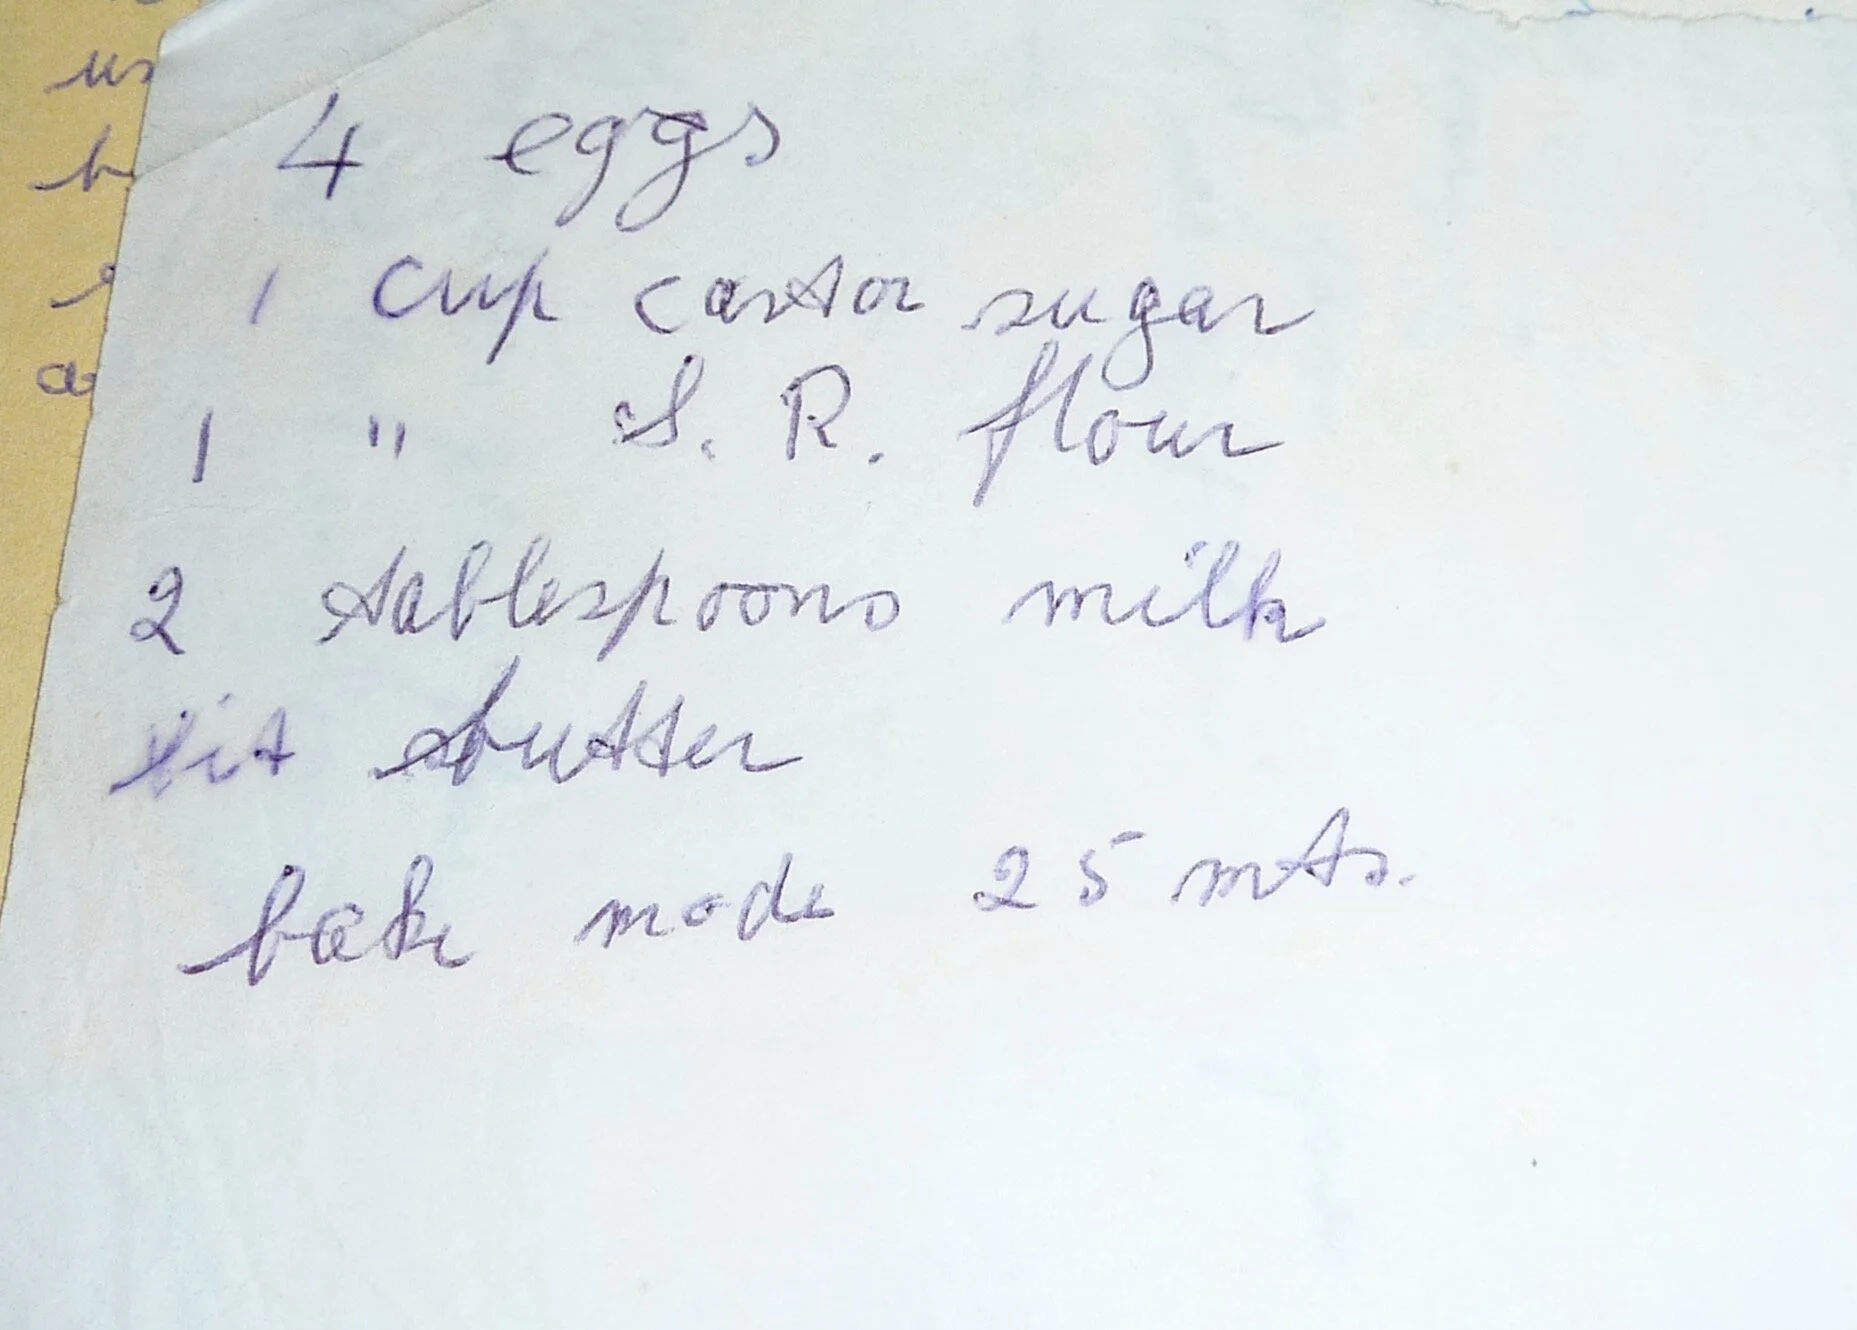 4 eggs
1 cup castor sugar
1 " S. R. flour
2 tablespoons milk
bit butter
bake mode 25 mts.